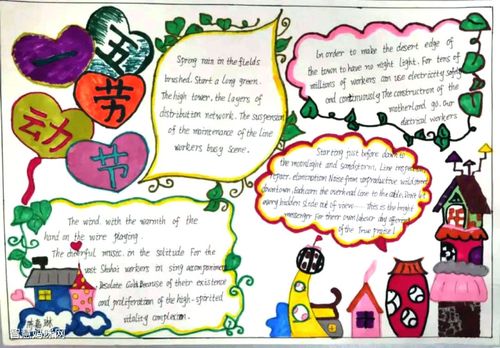 五一
劳动
节
Spring rain in the fields
brushed. Start a long green.
The high tower. the layers of
distribution network. The suspension
of the maintenance of the line
workers busy scene.
In order to make the desert edge of
the town to have no night light. For tens of
millions of workers can use electricity safely
and continuously The construction of the
motherland go. Our
electrical workers
Starting just before dawn to
the moonlight and sandstorm. Line inspection
repair. elimination Noise from unproductive wilderness
downtown. Each corn the overhead line to the cable. Drive to
every hidden side out of view---- This is the bright
messenger For their own labour day offering
of the True praise!
The wind with the warmth of the
hand on the wire playing.
The cheerful music. in the solitude For the
vast workers in sing accompaniment
Desolate Gobi Because of their existence
and proliferation of the high-spirited
vitality complexion.
智慧妈咪网